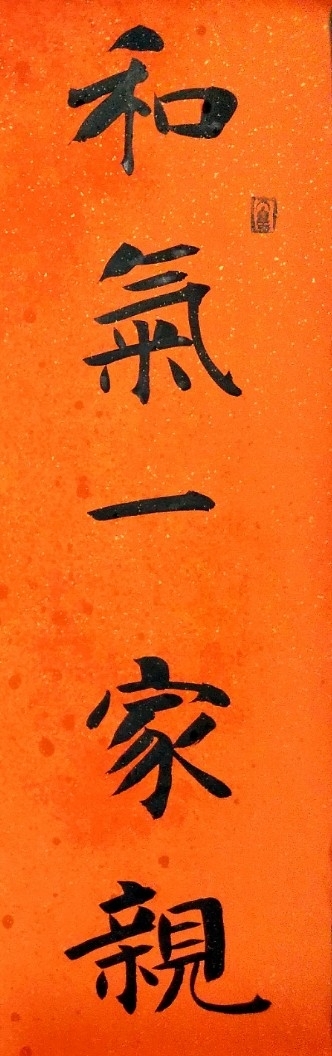 和氣一家親